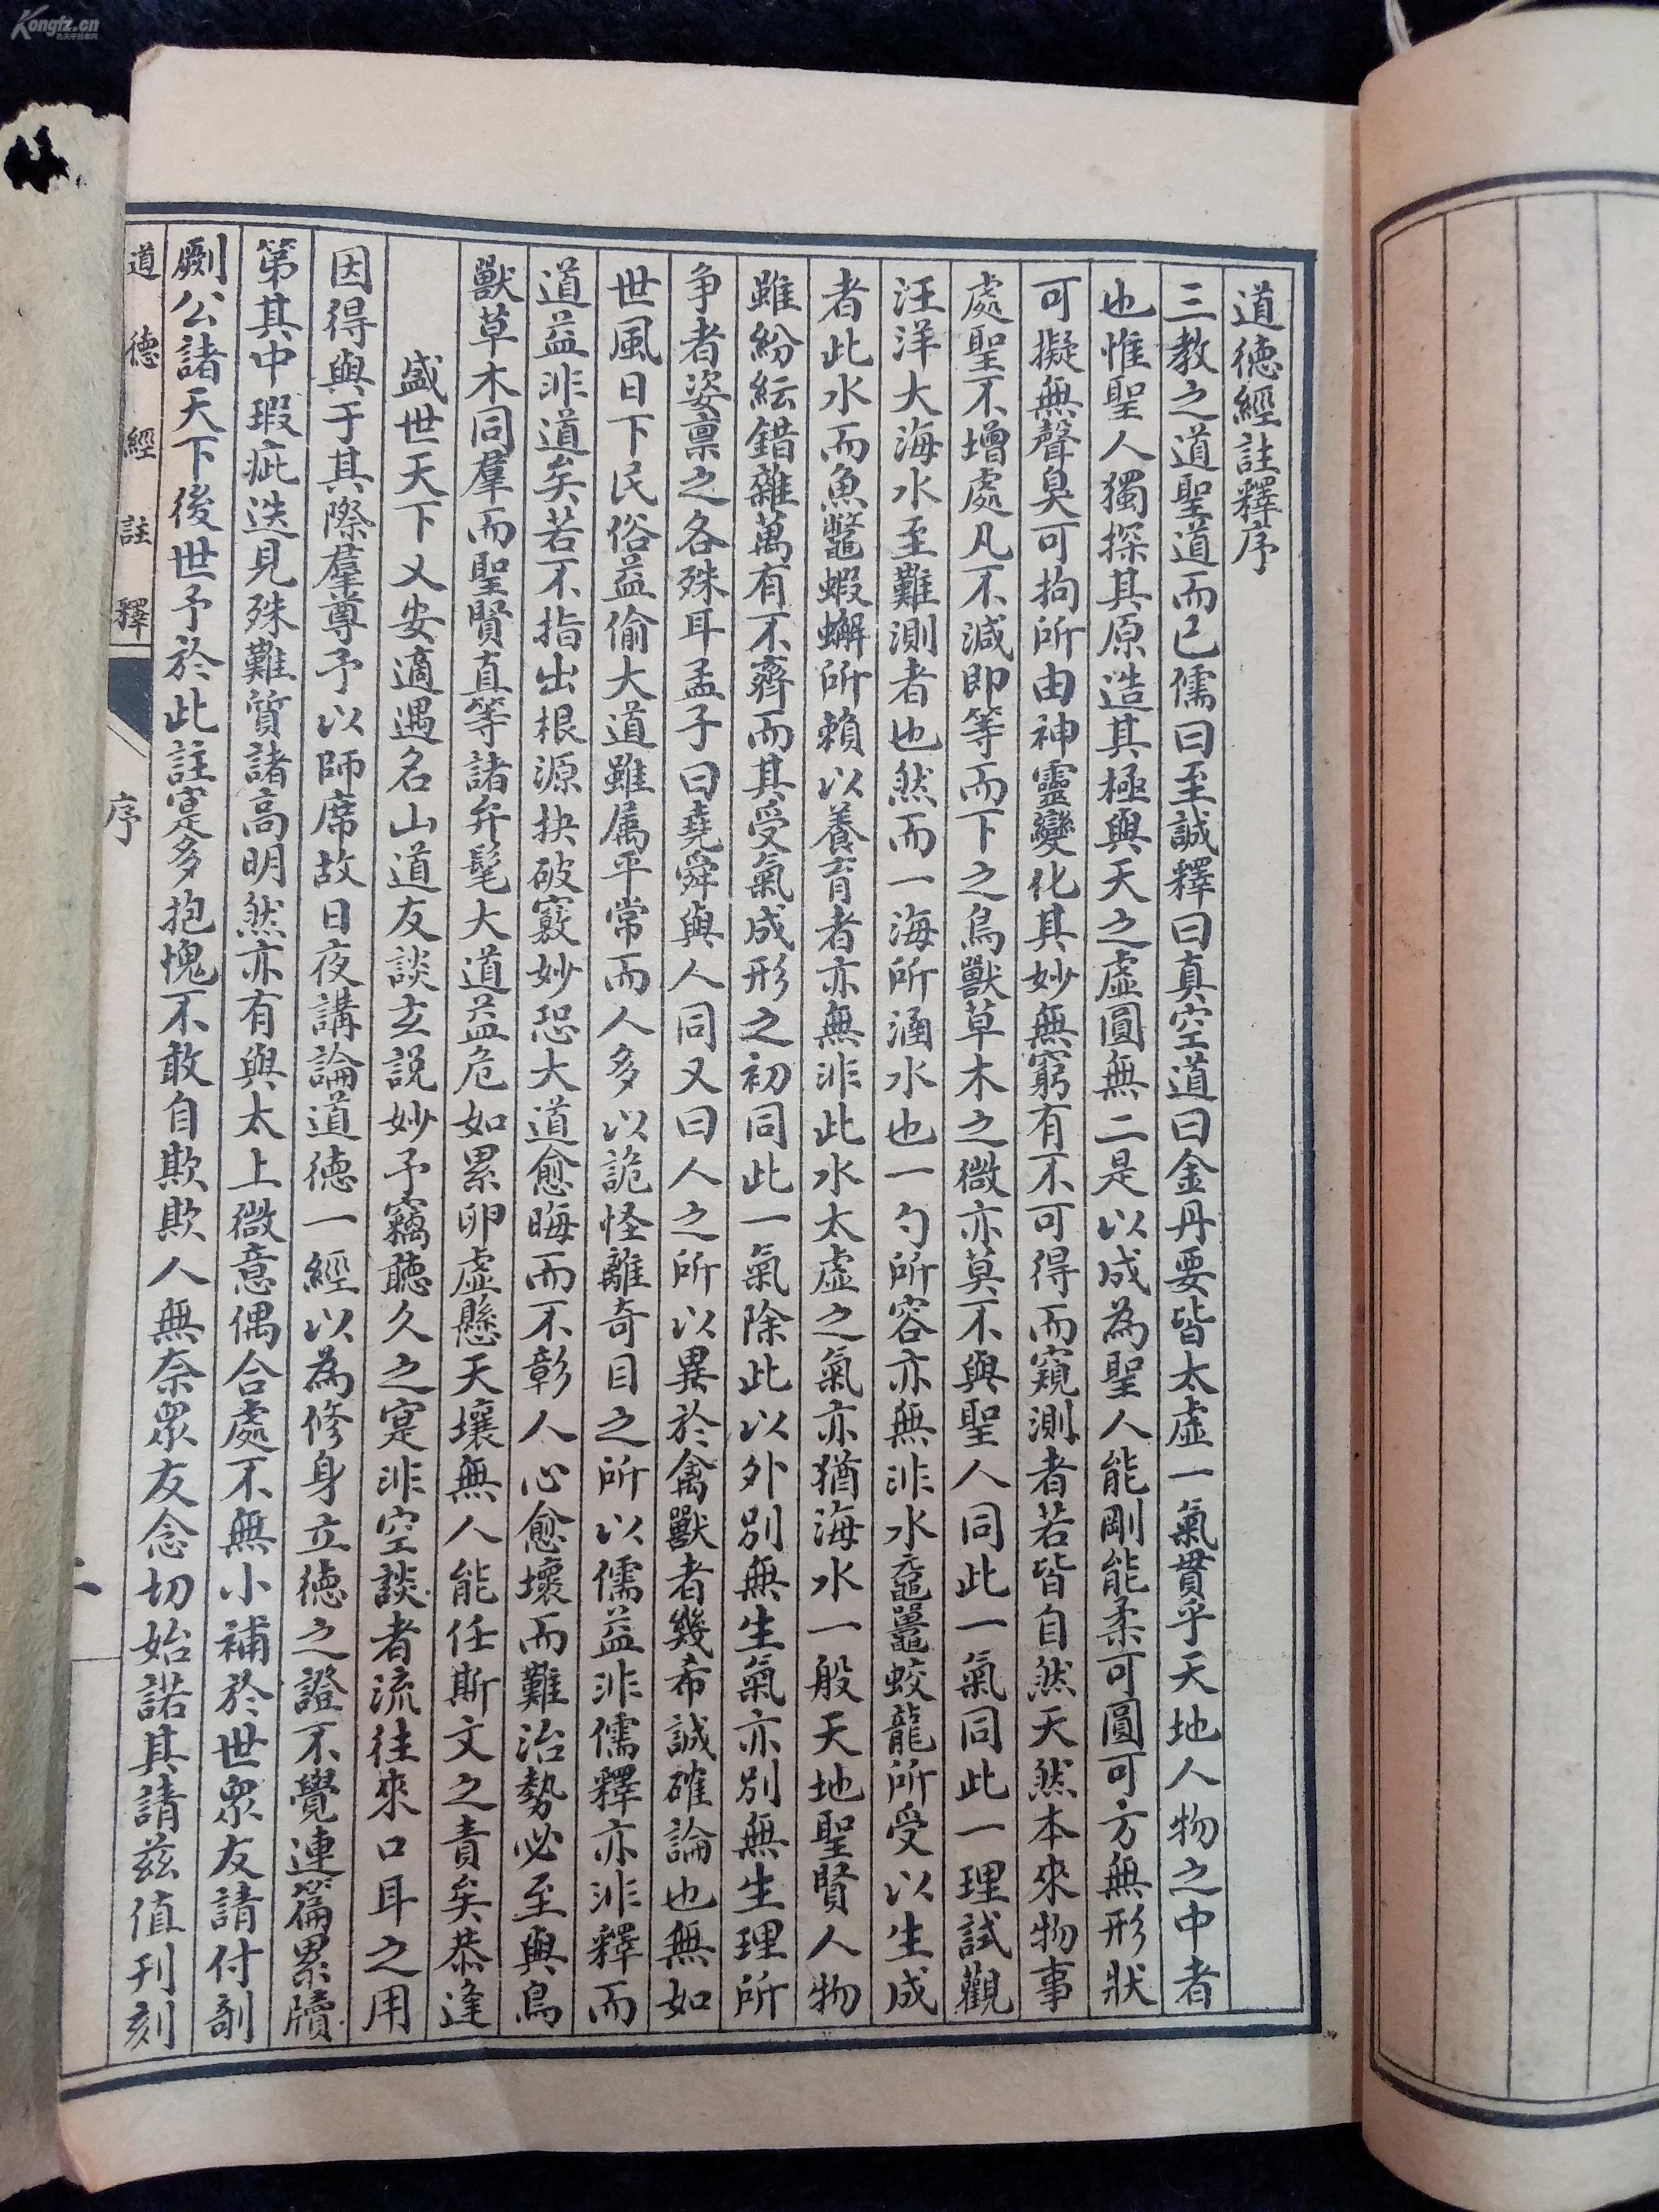 道德經註釋序
三教之道聖道而已儒曰至誠釋曰真空道曰金丹要皆太虛一氣貫乎天地人物之中者
也惟聖人獨探其原造其極與天之虛圓無二是以成為聖人能剛能柔可圓可方無形狀
可擬無聲臭可拘所由神靈變化其妙無窮有不可得而窺測者若皆自然天然本來物事
處聖不增處凡不減即等而下之鳥獸草木之微亦莫不與聖人同此一氣同此一理試觀
汪洋大海水至難測者也然而一海所涵水也一勺所容亦無非水黿鼉蛟龍所受以生成
者此水而魚鼈蝦蠏所賴以養育者亦無非此水太虛之氣亦猶海水一般天地聖賢人物
雖紛紜錯雜萬有不齊而其受氣成形之初同此一氣除此以外別無生氣亦別無生理所
争者姿禀之各殊耳孟子曰堯舜與人同又曰人之所以異於禽獸者幾希誠確論也無如
世風日下民俗益偷大道雖属平常而人多以詭怪離奇目之所以儒益非儒釋亦非釋而
道益非道矣若不指出根源抉破竅妙恐大道愈晦而不彰人心愈壞而難治勢必至與鳥
獸草木同羣而聖賢真等諸弁髦大道益危如累卵虛懸天壤無人能任斯文之責矣恭逢
盛世天下乂安適遇名山道友談玄說妙予竊聽久之寔非空談者流往來口耳之用
因得與于其際羣尊予以師席故日夜講論道德一經以為修身立德之證不覺連篇累牘
第其中瑕疵迭見殊難質諸高明然亦有與太上微意偶合處不無小補於世眾友請付剞
劂公諸天下後世予於此註寔多抱愧不敢自欺欺人無奈眾友念切始諾其請茲值刊刻
道德經註釋
序
Kongfz.cn